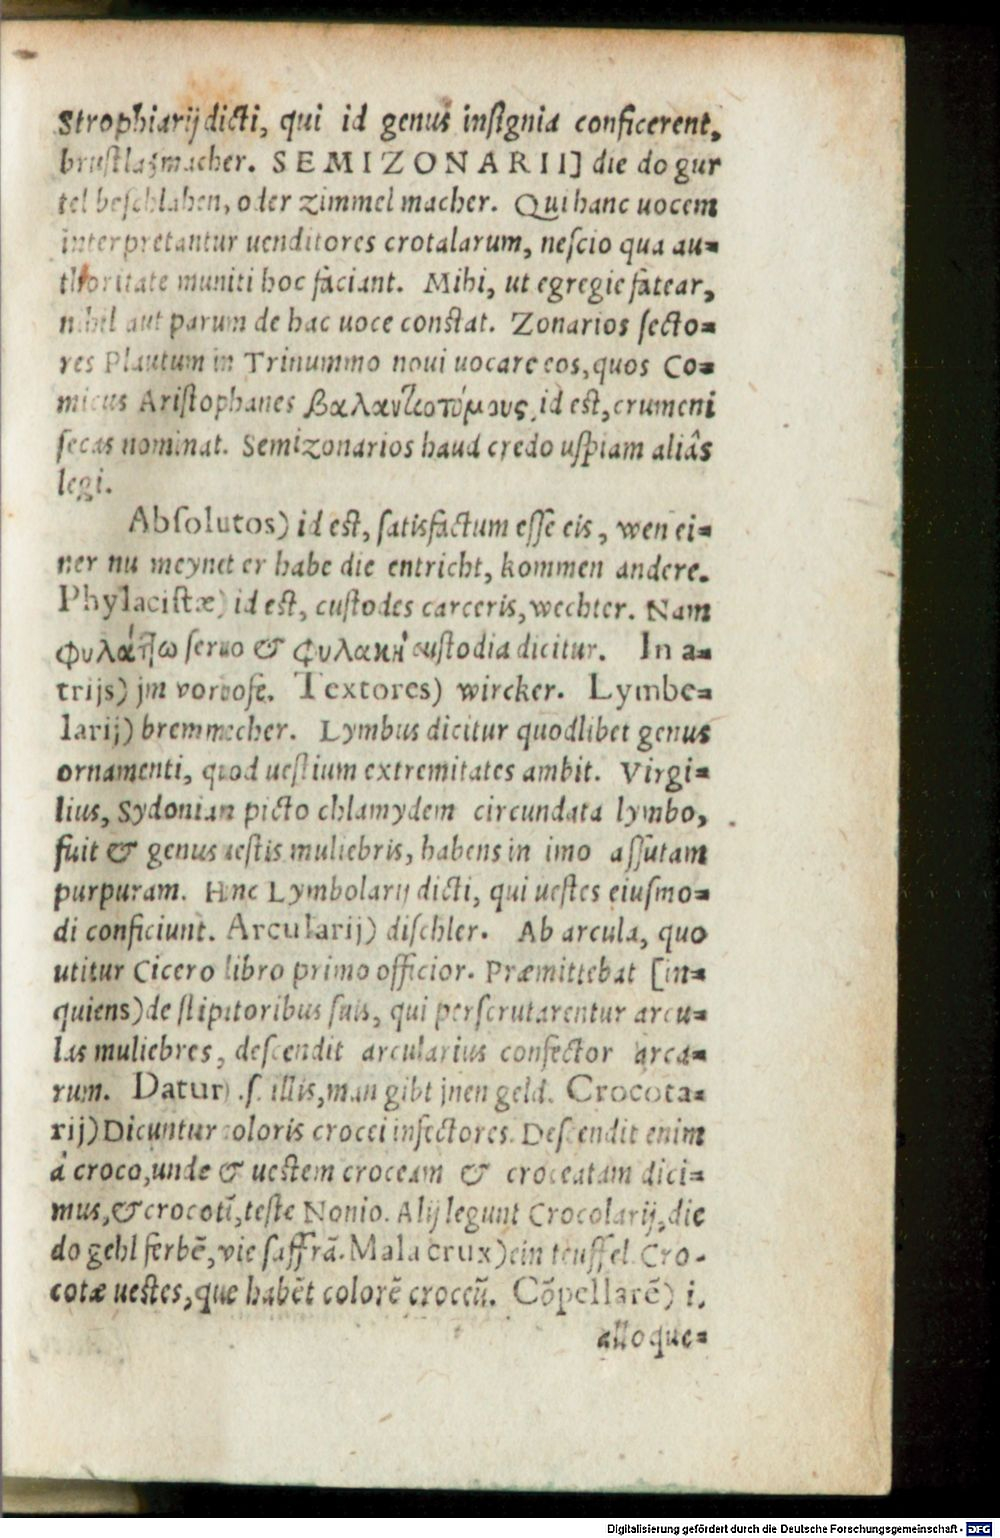 Strophiarij dicti, qui id genus insignia conficerent,
brustlatzmacher. SEMIZONARII] die do gur
tel beschlahen, oder zimmel macher. Qui hanc uocem
interpretantur uenditores crotalarum, nescio qua au=
thoritate muniti hoc faciant. Mihi, ut egregie fatear,
nihil aut parum de hac uoce constat. Zonarios secto=
res Plautum in Trinummo noui uocare eos, quos Co=
micus Aristophanes βαλαντιοτόμους, id est, crumeni
secas nominat. Semizonarios haud credo uspiam aliâs
legi.
Absolutos) id est, satisfactum esse eis, wen ei=
ner nu meynet er habe die entricht, kommen andere.
Phylacistæ) id est, custodes carceris, wechter. Nam
φυλάττω seruo & φυλακὴ custodia dicitur. In a=
trijs) jm vorhofe. Textores) wircker. Lymbe=
larij) bremmecher. Lymbus dicitur quodlibet genus
ornamenti, quod uestium extremitates ambit. Virgi=
lius, Sydonian picto chlamydem circundata lymbo,
fuit & genus uestis muliebris, habens in imo assutam
purpuram. Hinc Lymbolarij dicti, qui uestes eiusmo=
di conficiunt. Arcularij) dischler. Ab arcula, quo
utitur Cicero libro primo officior. Præmittebat [in=
quiens) de stipitoribus suis, qui perscrutarentur arcu=
las muliebres, descendit arcularius confector arca=
rum. Datur) .s. illis, man gibt jnen geld. Crocota=
rij) Dicuntur coloris crocei infectores. Descendit enim
à croco, unde & uestem croceam & croceatam dici=
mus, & crocotū, teste Nonio. Alij legunt Crocolarij, die
do gehl ferbē, vie saffrā. Mala crux) ein teuffel. Cro=
cotæ uestes, que habēt colorē croceū. Cōpellarē) i.
alloque=
Digitalisierung gefördert durch die Deutsche Forschungsgemeinschaft - DFG